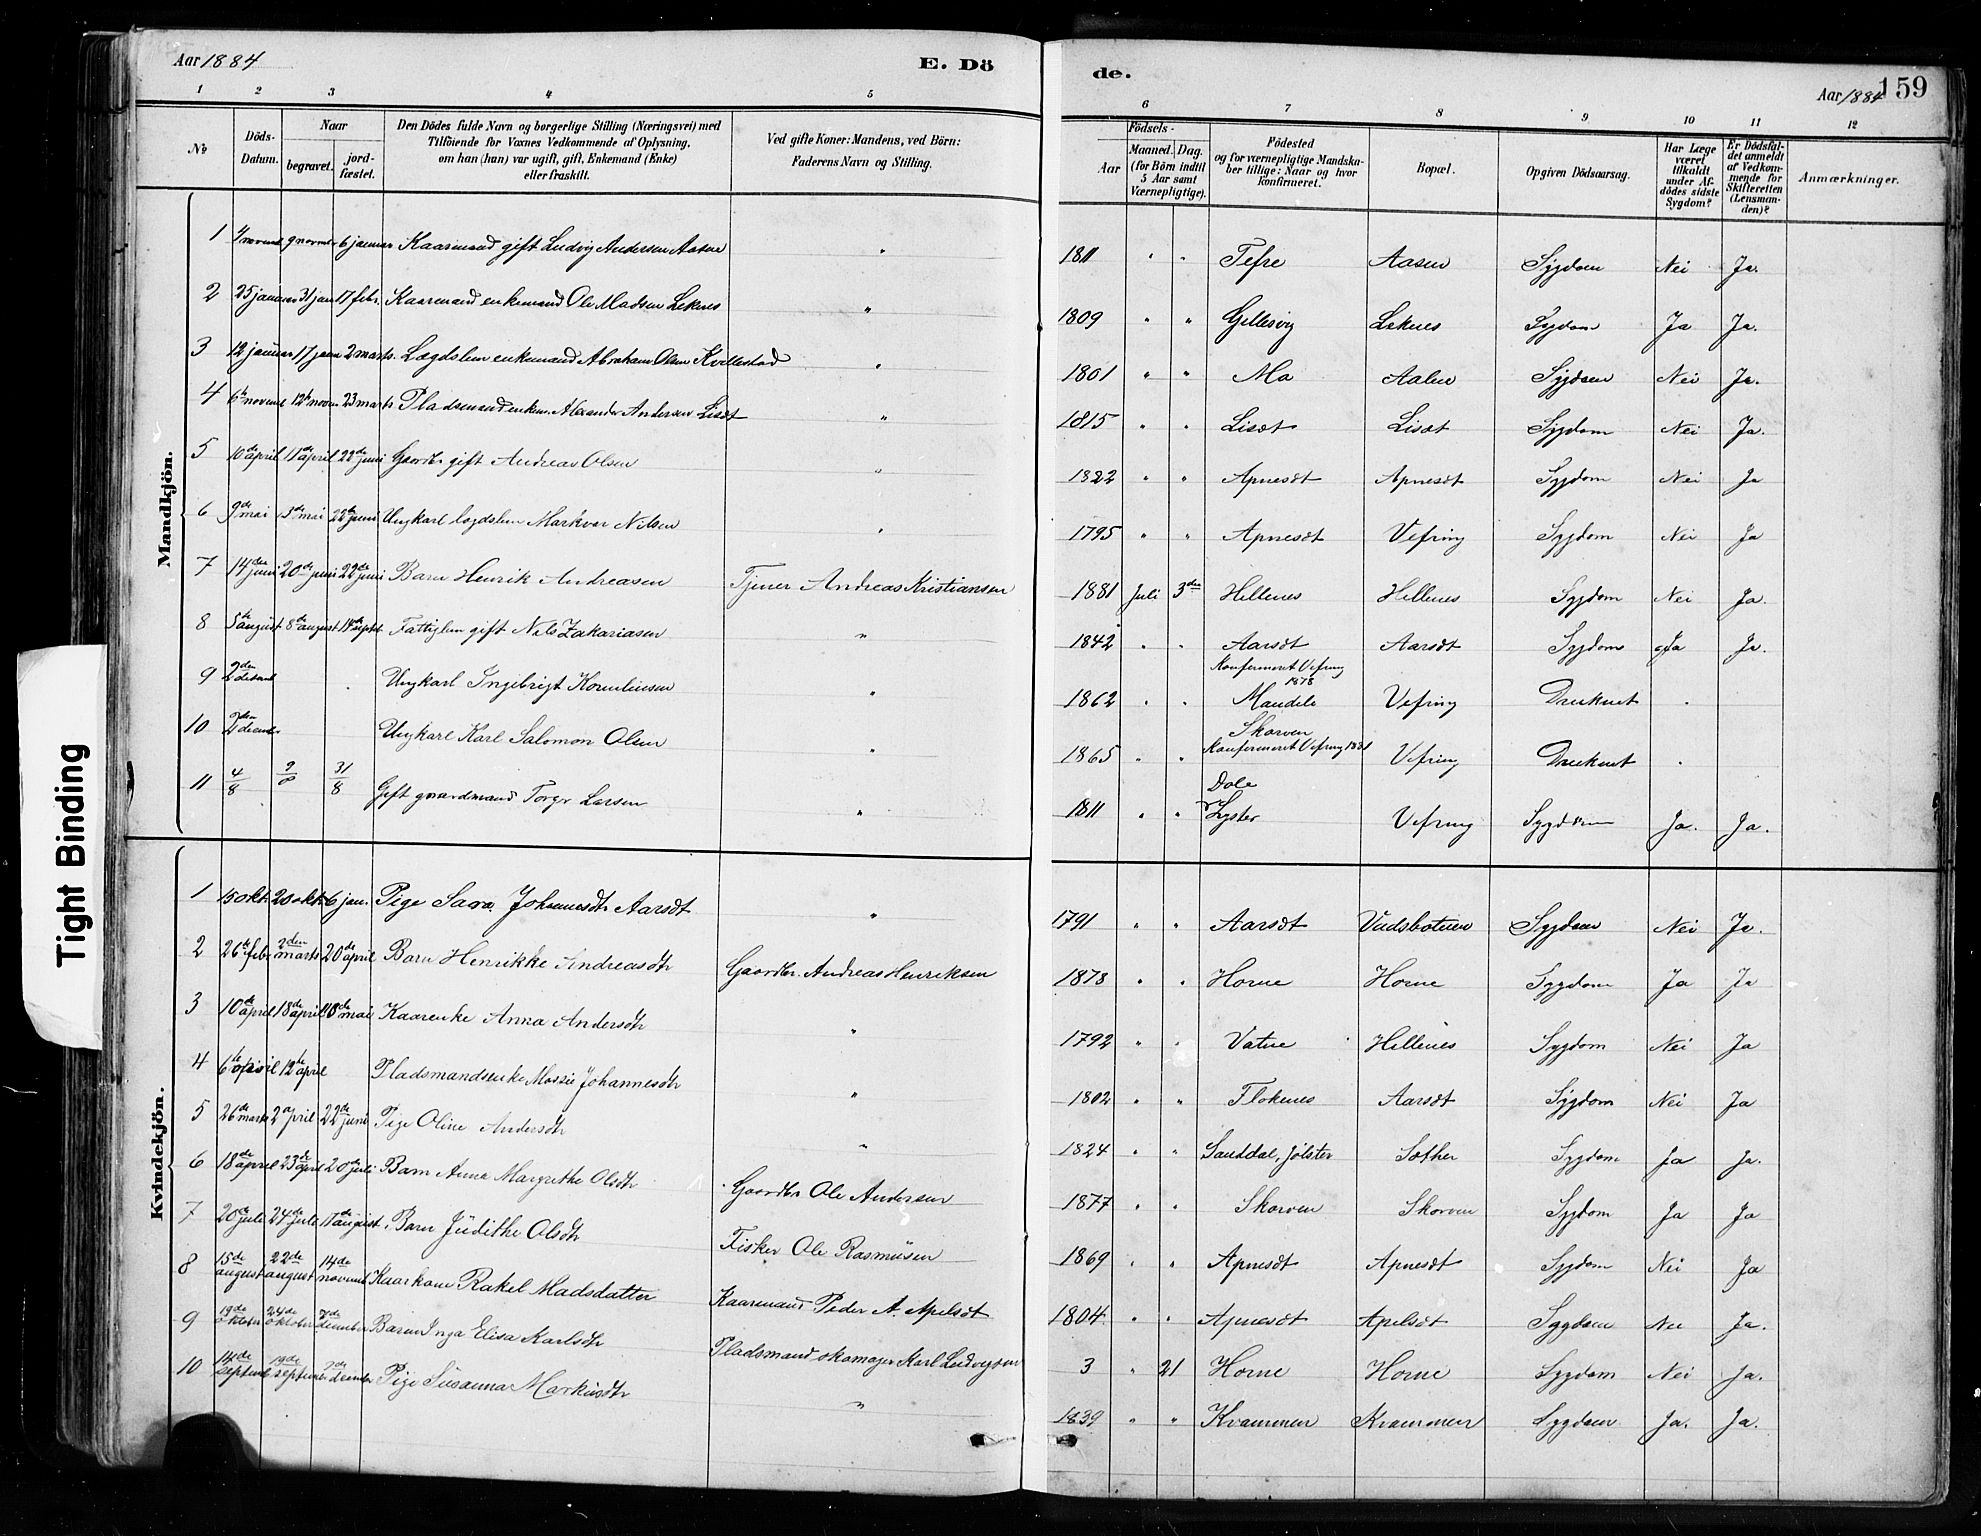 Aar 1884 E. Dö de. Aar 1884 159
1 2 3 4 5 6 7 8 9 10 11 12
No
Döds-Datum.
Naar
begravet.
jord-fæstet.
Den Dödes fulde Navn og borgerlige Stilling (Næringsvei) med
Tilföiende for Voxnes Vedkommende af Oplysning,
om han (hun) var ugift, gift, Enkemand (Enke)
eller fraskilt.
Ved gifte Koner: Mandens, ved Börn:
Faderens Navn og Stilling.
Födsels-
Aar
Maaned. Dag.
(for Börn indtil
5 Aar samt
Værnepligtige).
Födested
og for værnepligtige Mandska-
ber tillige: Naar og hvor
konfirmeret.
Bopæl.
Opgiven Dödsaarsag.
Har Læge
været
tilkaldt
under Af-
dödes sidste
Sygdom?
Er Dödsfal-
det anmeldt
af Vedkom-
mende for
Skifteretten
(Lensman-
den)?
Anmærkninger.
Tight Binding
Mandkjön.
1 novembr 9 novmbr 6 januar Kaarmand gift Ludvig Andersen Aasen " 1811 " " Tefre Aasen Sygdom Nei Ja.
2 25 januar 31 jan 17 febr. Kaarmand enkemand Ole Madsen Leknes " 1809 " " Gillesvig Leknes Sygdom Ja Ja.
3 12 januar 17 janu 2 marts. Lægdslem enkemand Abraham Olsen Kvellestad " 1801 " " Mo Aalen Sygdom Nei Ja.
4 6te novmbr 12te novm 23 marts Pladsmand enkem. Alexander Andersen Lisæt " 1815 " " Lisæt Lisæt Sygdom Nei Ja.
5 10de april 11de april 22de juni Gaardbr. gift Andreas Olsen " 1822 " " Apnesæt Apnesæt Sygdom Nei Ja
6 9de mai 13de mai 22de juni Ungkarl lægdslem Markvor Nilsen " 1795 " " Apnesæt Vefring Sygdom Nei Ja
7 14den juni 20de juni 22de juni Barn Henrik Andreasen Tjener Andreas Kristiansen 1881 Juli 3den Hellenes Hellenes Sygdom Nei Ja.
8 5te august 8de august 14de septbr Fattiglem gift Nils Zakariasen " 1842 " " Aarsæt Aarsæt Sygdom Ja Ja.
9 2den Ungkarl Ingebrigt Korneliusen " 1862 " " Konfirmeret Vefring 1878 Maudele Vefring Druknet
10 2den decmbr Ungkarl Karl Salomon Olsen " 1865 " " Skorven Konfirmeret Vefring 1881 Vefring Druknet
11 4/8 9/8 31/8 Gift gaardmand Torger Larsen " 1811 " " Dale Lyster Vefring Sygdom Ja. Ja.
Kvindekjön.
1 15 okt. 20 okt. 6 jan. Pige Sara Johannesdtr Aarsæt " 1791 " " Aarsæt Vadsbotnen Sygdom Nei Ja.
2 26de febr. 2den marts 20de april Barn Henrikke Andreasdtr Gaardbr. Andreas Henriksen 1878 " " Horne Horne Sygdom Ja Ja
3 10de april 18de april 18de mai Kaarenke Anna Andersdtr " 1792 " " Vatne Hellenes Sygdom Nei Ja
4 6te april 12te april Pladsmandsenke Massie Johannesdtr " 1802 " " Flokenes Aarsæt Sygdom Nei Ja
5 26de marts 2 april 22de juni Pige Oline Andersdtr " 1824 " " Sanddal, Jølster Sæther Sygdom Ja Ja.
6 18de april 23de april 20de juli Barn Anna Margrethe Olsdtr Gaardbr Ole Andersen 1877 " " Skorven Skorven Sygdom Ja Ja
7 20de juli 24de juli 17de august Barn Judithe Olsdtr Fisker Ole Rasmusen 1869 " " Apnesæt Apnesæt Sygdom Nei Ja
8 15de august 22de august 14de novembr Kaarkone Rakel Madsdatter Kaarmand Peder A. Apelsæt 1804 " " Apnesæt Apelsæt Sygdom Nei Ja.
9 19de oktober 24de oktober 7de december Barn Inga Elisa Karlsdtr Pladsmand skomager Karl Ludvigsen 3 " 21 Horne Horne Sygdom Nei Ja.
10 14de septembr 19de september 7de december Pige Susanna Markusdtr " 1839 " " Kvammen Kvammen Sygdom Ja. Ja.